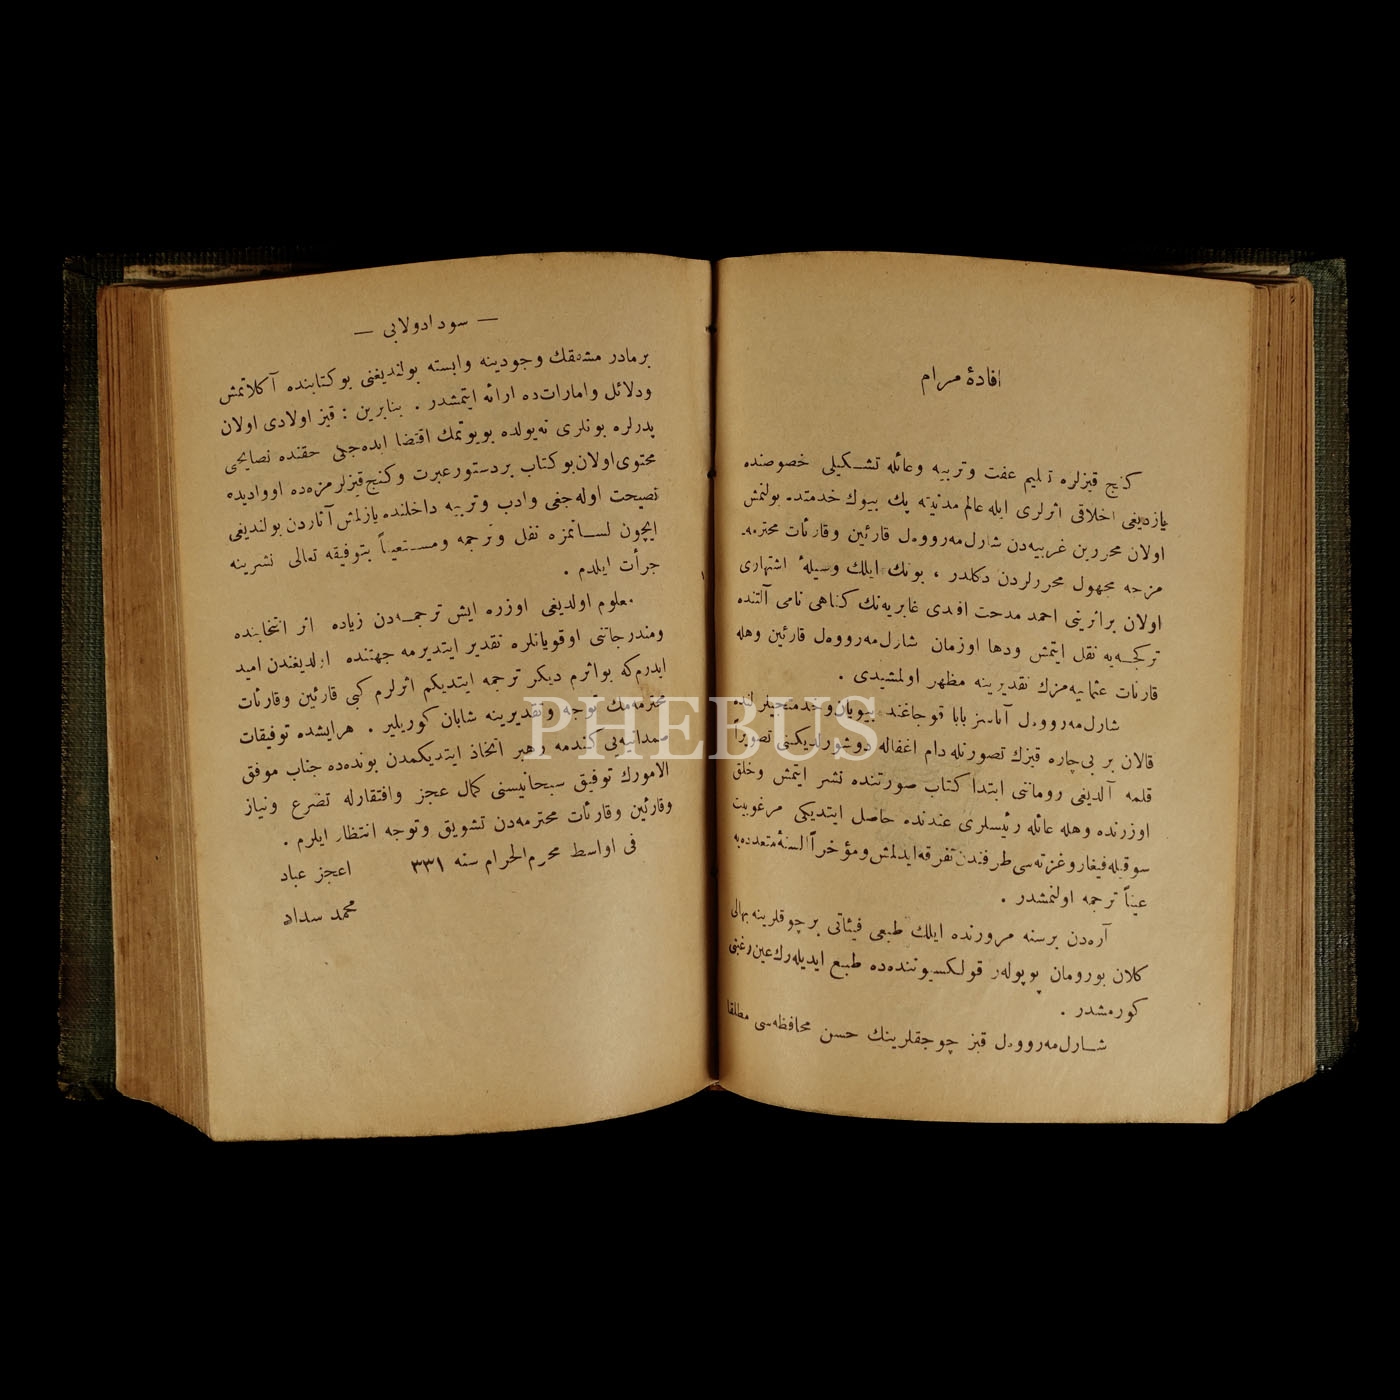 افادهٔ مرام
كنج قيزلره تعليم عفت وتربيه وعائله تشكيلى خصوصنده
يازديغى اخلاقى اثرلرى ايله عالم مدنيته پك بيوك خدمتد‌ـ بولنمش
اولان محررين غربيه‌دن شارل‌مەرووەل قارئين وقارئات محترمه‌ـ
مزجه مجهول محررلردن دكلدر ، بونك ايلك وسيلهٔ اشتهارى
اولان براثرينى احمد مدحت افندى غابريه‌نك كناهى نامى آلتنده
تركجه‌يه نقل ايتمش ودها اوزمان شارل‌مەرووەل قارئين وهله
قارئات عثمانيه‌مزك تقديرينه مظهر اولمشيدى .
شارل‌مەرووەل آناسز بابا قوجاغنده بيويان وخدمتجيلر النده
قالان بر بى‌چاره قيزك تصورتله دام اغفاله دوشورلديكنى تصويراً
قلمه آلديغى روماننى ابتدا كتاب صورتنده نشر ايتمش وخلق
اوزرنده وهله عائله رئيسلرى عندنده حاصل ايتديكى مرغوبيت
سوقيله فيغارو غزته‌سى طرفندن تفرقه ايدلمش ومؤخراً السنهٔ متعدده‌يه
عيناً ترجمه اولنمشدر .
آره‌دن برسنه مرورنده ايلك طبعى فيئاتى برچوقلرينه بهالى
كلان بورومان پوپولەر قولكسيوننده‌ده طبع ايديله‌رك عين رغبتى
كورمشدر .
شارل‌مەرووەل قيز چوجقلرينك حسن محافظه‌سى مطلقا
— سودا دولابى —
برمادر مشفقك وجودينه وابسته بولنديغنى بو كتابنده آكلاتمش
ودلائل وامارات‌ده ارائه ايتمشدر . بنابرين : قيز اولادى اولان
پدرلره بونلرى نه‌يولده بويوتمك اقتضا ايده‌جكى حقنده نصايحى
محتوى‌اولان‌بوكتاب بردستورعبرت وكنج‌قيزلرمزه‌ده اوواديده
نصيحت اوله‌جغى وادب وتربيه داخلنده يازلمش آثاردن بولنديغى
ايچون لسانمزه نقل وترجمه ومستعيناً بتوفيقه تعالى نشرينه
جرأت ايلدم .
معلوم اولديغى اوزره ايش ترجمه‌دن زياده اثر انتخابنده
ومندرجاتنى اوقويانلره تقدير ايتديرمه جهتنده اولديغندن اميد
ايدرم‌كه بواثرم ديكر ترجمه ايتديكم اثرلرم كبى قارئين وقارئات
محترمه‌مك توجه وتقديرينه شايان كوريلير . هرايشده توفيقات
صمدانيه‌يى كندمه رهبر اتخاذ ايتديكمدن بونده‌ده جناب موفق
الامورك توفيق سبحانيسنى كمال عجز وافتقارله تضرع ونياز
وقارئين وقارئات محترمه‌دن تشويق وتوجه انتظار ايلرم .
فى اواسط محرم‌الحرام سنه ٣٣١ اعجز عباد
محمد سداد
PHEBUS